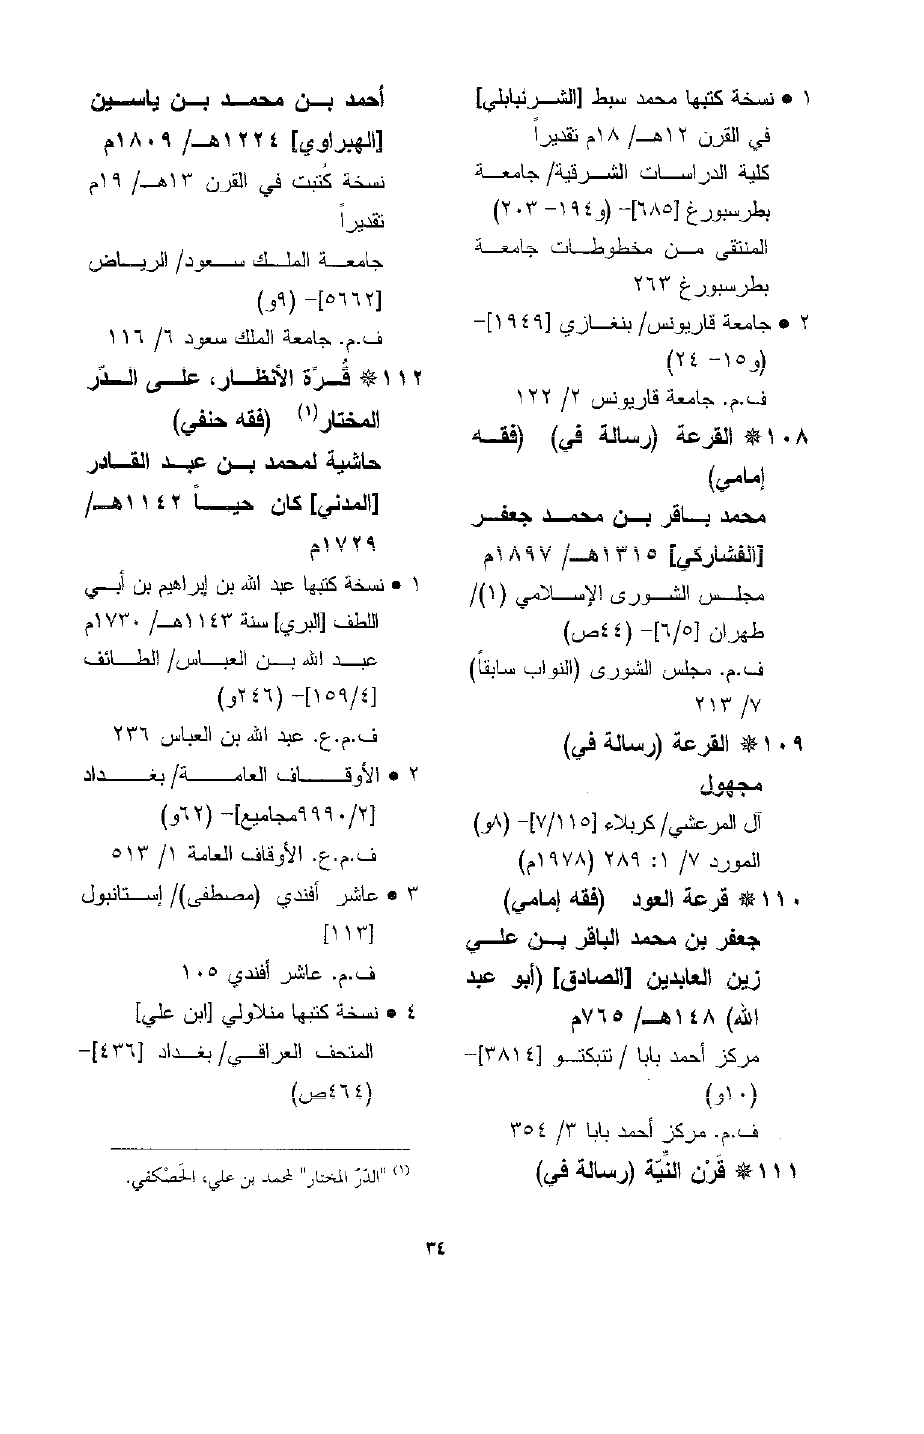 ١ • نسخة كتبها محمد سبط [الشرنبابلي]
في القرن ١٢هـ/ ١٨م تقديراً
كلية الدراسات الشرقية/ جامعة
بطرسبورغ [٦٨٥]- (و١٩٤- ٢٠٣)
المنتقى من مخطوطات جامعة
بطرسبورغ ٢٦٣
٢ • جامعة قاريونس/ بنغازي [١٩٤٩]-
(و١٥- ٢٤)
ف.م. جامعة قاريونس ٢/ ١٢٢
١٠٨* القرعة (رسالة في) (فقه
إمامي)
محمد باقر بن محمد جعفر
[الفشاركي] ١٣١٥هـ/ ١٨٩٧م
مجلس الشورى الإسلامي (١)/
طهران [٦/٥]- (٤٤ص)
ف.م. مجلس الشورى (النواب سابقاً)
٧/ ٢١٣
١٠٩* القرعة (رسالة في)
مجهول
آل المرعشي/ كربلاء [٧/١١٥]- (٨و)
المورد ٧/ ١: ٢٨٩ (١٩٧٨م)
١١٠* قرعة العود (فقه إمامي)
جعفر بن محمد الباقر بن علي
زين العابدين [الصادق] (أبو عبد
الله) ١٤٨هـ/ ٧٦٥م
مركز أحمد بابا / تنبكتو [٣٨١٤]-
(١٠و)
ف.م. مركز أحمد بابا ٣/ ٣٥٤
١١١* قَرْن النِّيَّة (رسالة في)
أحمد بن محمد بن ياسين
[الهبراوي] ١٢٢٤هـ/ ١٨٠٩م
نسخة كُتبت في القرن ١٣هـ/ ١٩م
تقديراً
جامعة الملك سعود/ الرياض
[٥٦٦٢]- (٩و)
ف.م. جامعة الملك سعود ٦/ ١١٦
١١٢* قُرَّة الأنظار، على الدّر
المختار(١) (فقه حنفي)
حاشية لمحمد بن عبد القادر
[المدني] كان حياً ١١٤٢هـ/
١٧٢٩م
١ • نسخة كتبها عبد الله بن إبراهيم بن أبي
اللطف [البري] سنة ١١٤٣هـ/ ١٧٣٠م
عبد الله بن العباس/ الطائف
[١٥٩/٤]- (٢٤٦و)
ف.م.ع. عبد الله بن العباس ٢٣٦
٢ • الأوقاف العامة/ بغداد
[٩٩٩٠/٢مجاميع]- (٦٢و)
ف.م.ع. الأوقاف العامة ١/ ٥١٣
٣ • عاشر أفندي (مصطفى)/ إستانبول
[١١٣]
ف.م. عاشر أفندي ١٠٥
٤ • نسخة كتبها منلاولي [ابن علي]
المتحف العراقي/ بغداد [٤٣٦]-
(٤٦٤ص)
(١) "الدّرّ المختار" لمحمد بن علي، الحَصْكفي.
٣٤